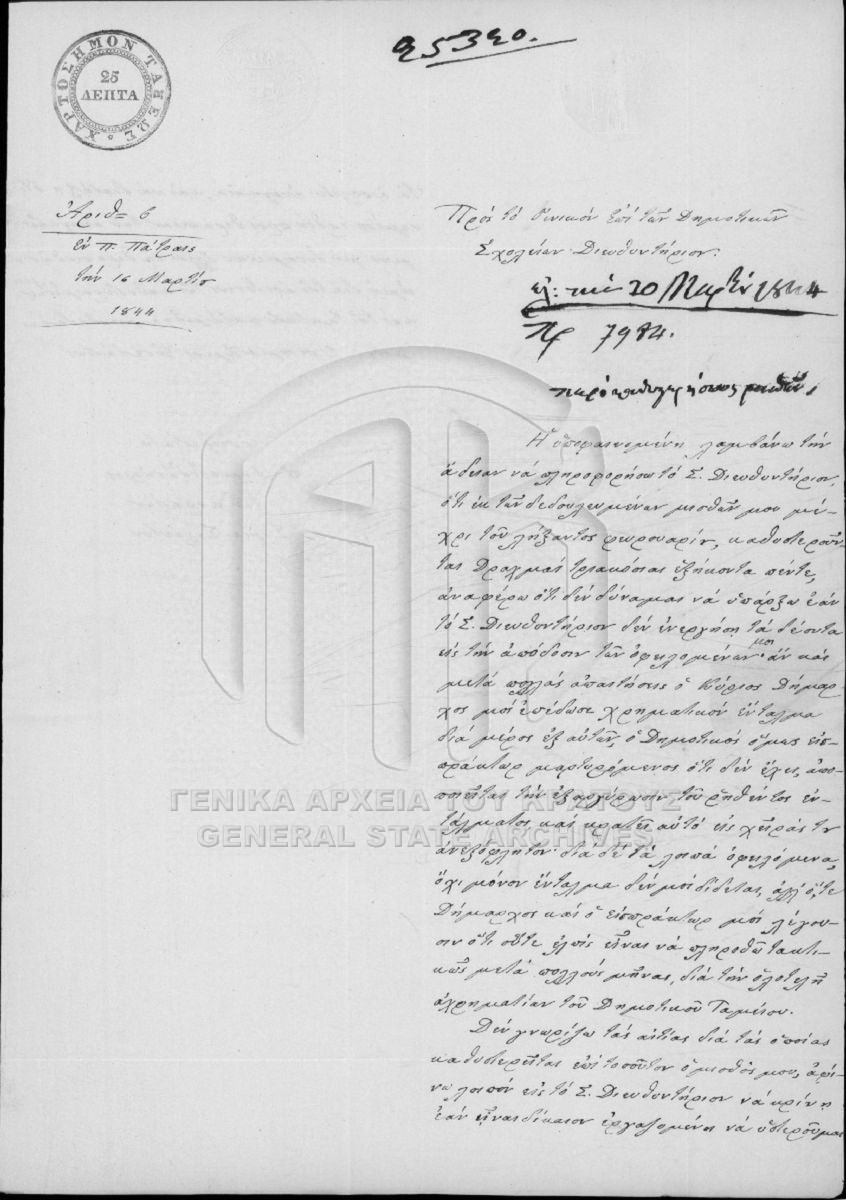 25320.
ΧΑΡΤΟΣΗΜΟΝ ΤΑΞΕΩΣ
25
ΛΕΠΤΑ
Ἀριθ= 6
Ἐν Π. Πάτραις
τὴν 16 Μαρτίου
1844
Πρὸς τὸ Γενικὸν ἐπὶ τῶν Δημοτικῶν
Σχολείων Διευθυντήριον.
20 Μαρτίου 1844
Πρ 7984.
μισθῶν
Ἡ ὑποφαινομένη λαμβάνω τὴν
ἄδειαν νὰ πληροφορήσω τὸ Σ. Διευθυντήριον,
ὅτι ἐκ τῶν δεδουλευμένων μισθῶν μου μέ-
χρι τοῦ λήξαντος φευρουαρίου, καθυστεροῦν-
ται Δραχμαὶ τριακόσιαι ἑξήκοντα πέντε,
ἀναφέρω ὅτι δὲν δύναμαι νὰ ὑπάρξω ἐὰν
τὸ Σ. Διευθυντήριον δὲν ἐνεργήσῃ τὰ δέοντα
εἰς τὴν ἀπόδοσιν τῶν ὀφειλομένων μοι· ἂν καὶ
μετὰ πολλὰς ἀπαιτήσεις ὁ Κύριος Δήμαρ-
χος μοὶ ἐπέδωσε χρηματικὸν ἔνταλμα
διὰ μέρος ἐξ αὐτῶν, ὁ Δημοτικὸς ὅμως εἰσ-
πράκτωρ μαρτυρόμενος ὅτι δὲν ἔχει, ἀπο-
ποιεῖται τὴν ἐξαργύρωσιν τοῦ ῥηθέντος ἐν-
τάλματος καὶ κρατεῖ αὐτὸ εἰς χεῖράς του
ἀνεξόφλητον· διὰ δὲ τὰ λοιπὰ ὀφειλόμενα,
ὄχι μόνον ἔνταλμα δὲν μοὶ δίδεται, ἀλλ' ὅ,τε
Δήμαρχος καὶ ὁ εἰσπράκτωρ μοὶ λέγου-
σιν ὅτι οὔτε ἐλπὶς εἶναι νὰ πληρωθῶ τακτι-
κῶς μετὰ πολλοὺς μῆνας, διὰ τὴν ὁλοτελῆ
ἀχρηματίαν τοῦ Δημοτικοῦ Ταμείου.
Δὲν γνωρίζω τὰς αἰτίας διὰ τὰς ὁποίας
καθυστερεῖται ἐπὶ τοσοῦτον ὁ μισθός μου, ἀφί-
νω λοιπὸν εἰς τὸ Σ. Διευθυντήριον νὰ κρίνῃ
ἐὰν ἦναι δίκαιον ἐργαζομένη νὰ ὑστεροῦμαι
ΓΕΝΙΚΑ ΑΡΧΕΙΑ ΤΟΥ ΚΡΑΤΟΥΣ
GENERAL STATE ARCHIVES